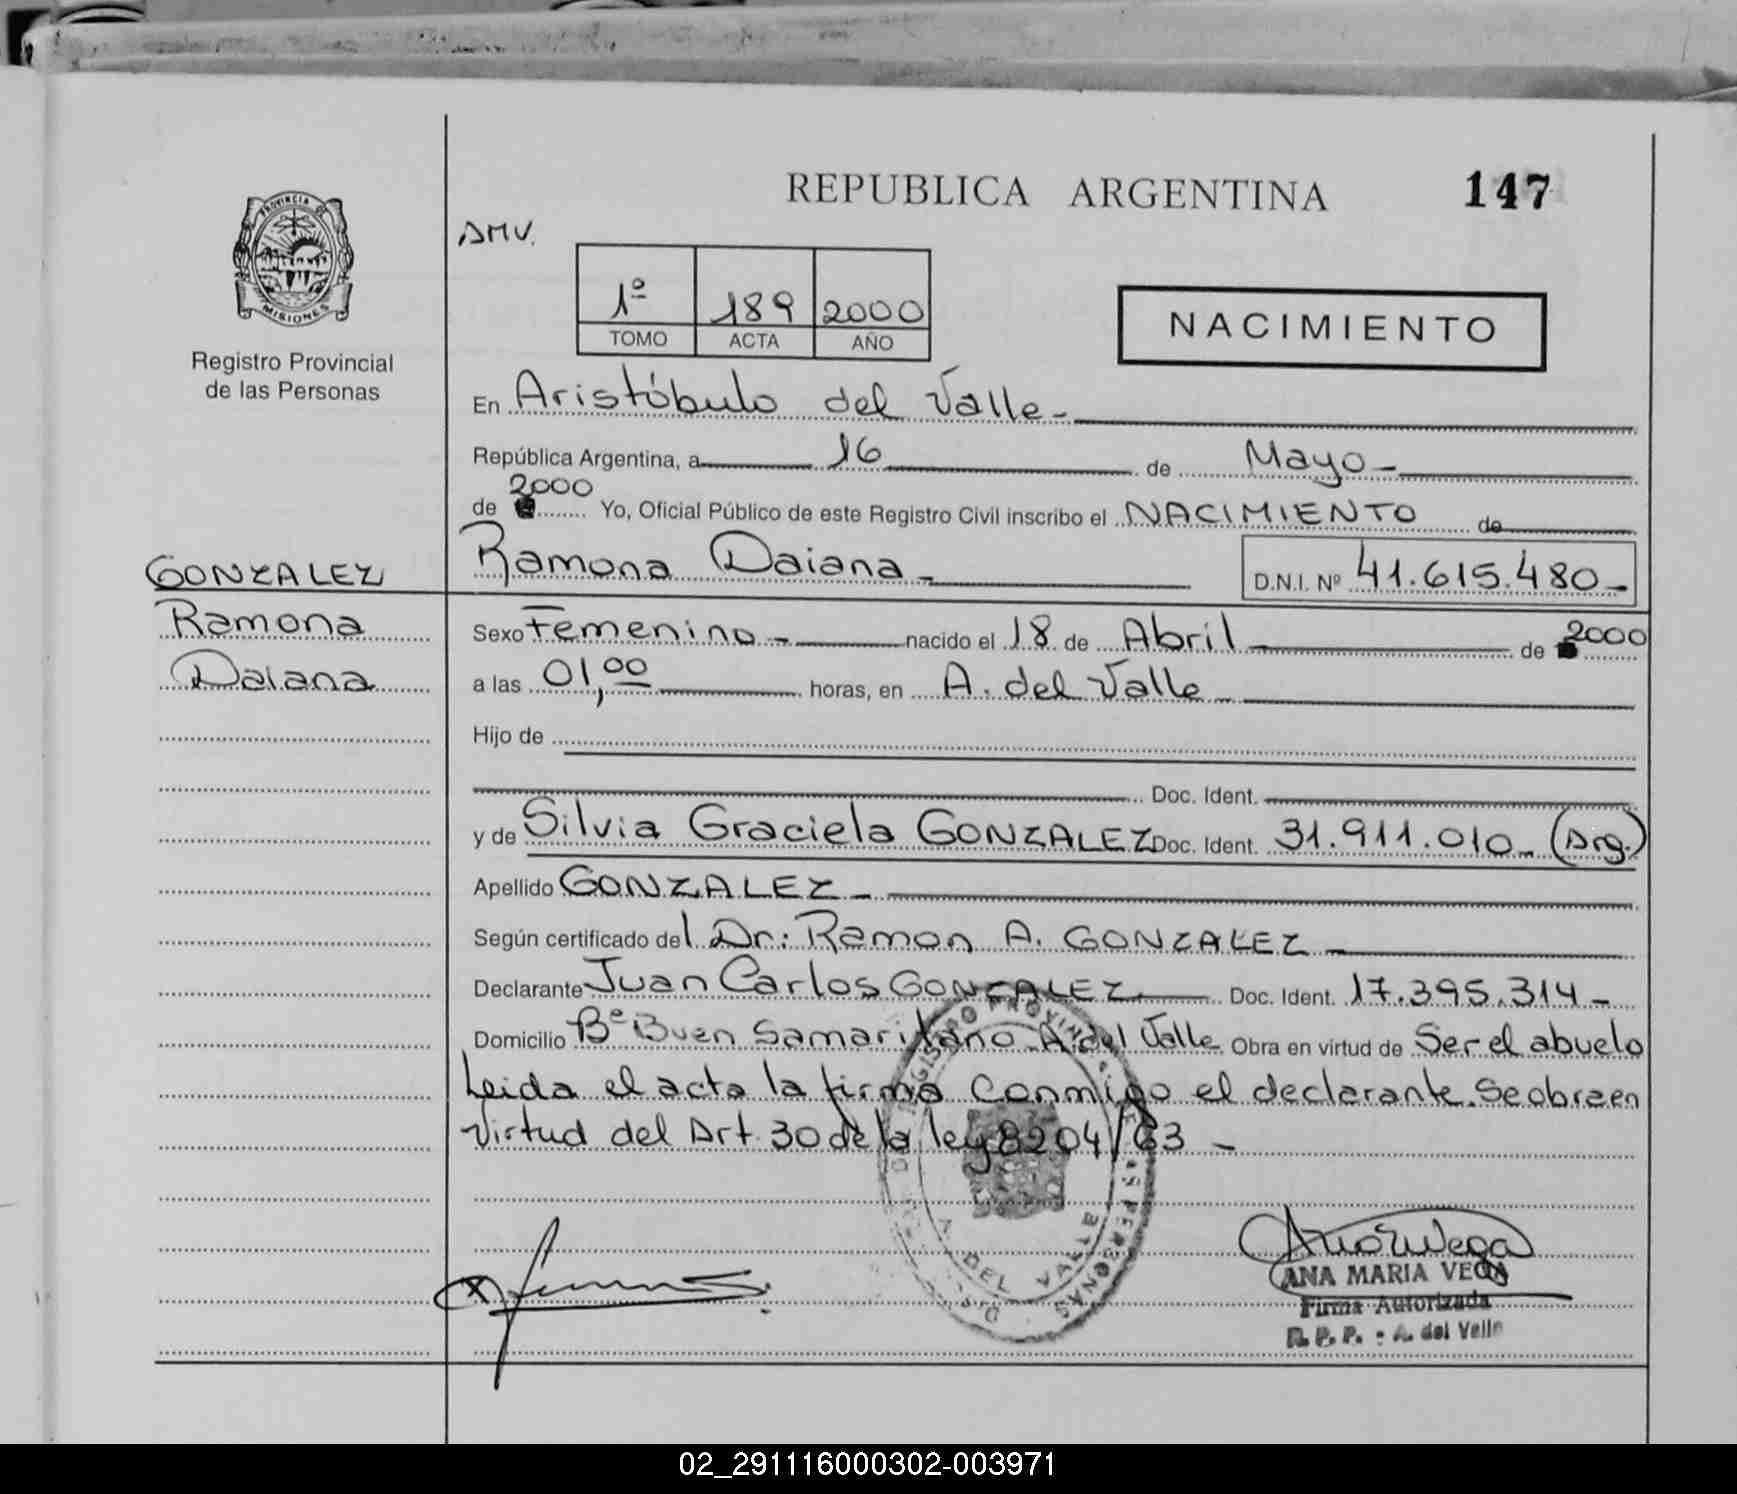 REPUBLICA ARGENTINA 147
AMV.
1º 189 2000
TOMO ACTA AÑO
NACIMIENTO
PROVINCIA DE
MISIONES
Registro Provincial
de las Personas
En Aristóbulo del Valle-
República Argentina, a 16 de Mayo-
de 2000 Yo, Oficial Público de este Registro Civil inscribo el NACIMIENTO de
GONZALEZ
Ramona
Daiana
Ramona Daiana- D.N.I. Nº 41.615.480-
Sexo Femenino- nacido el 18 de Abril de 2000
a las 01,00 horas, en A. del Valle
Hijo de
Doc. Ident.
y de Silvia Graciela GONZALEZ Doc. Ident. 31.911.010- (Arg.)
Apellido GONZALEZ-
Según certificado del Dr: Ramon A. GONZALEZ-
Declarante Juan Carlos GONZALEZ Doc. Ident. 17.395.314-
Domicilio Bº Buen Samaritano A. del Valle Obra en virtud de Ser el abuelo
Leida el acta la firma conmigo el declarante. Se obra en
virtud del Art. 30 de la ley 8204/63-
A. DEL VALLE
ANA MARIA VEGA
Firma Autorizada
R. P. P. - A. del Valle
02_291116000302-003971